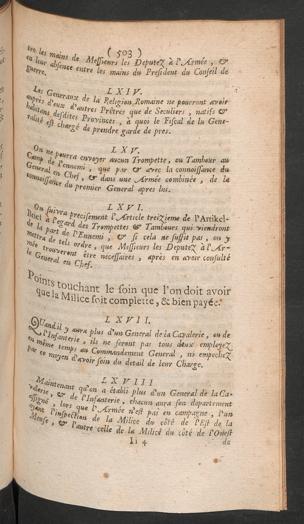 ( 503 )
tre les mains de Messieurs les Deputez à l'Armée, &
en leur absence entre les mains du President du Conseil de
guerre.
LXIV.
Les Generaux de la Religion Romaine ne pourront avoir
auprès d'eux d'autres Prêtres que de Seculiers, natifs &
habitans desdites Provinces, à quoi le Fiscal de la Gene-
ralité est chargé de prendre garde de pres.
LXV.
On ne pourra envoyer aucun Trompette, ou Tambour au
Camp de l'ennemi, que par & avec la connoissance du
General en Chef, & dans une Armée combinée, de la
connoissance du premier General apres lui.
LXVI.
On suivra precisement l'Article treizieme de l'Artikel-
Brief à l'égard des Trompettes & Tambours qui viendront
de la part de l'Ennemi, & si cela ne suffit pas, on y
mettra de tels ordre, que Messieurs les Deputez à l'Ar-
mée trouveront être necessaires, après en avoir consulté
le General en Chef.
Points touchant le soin que l'on doit avoir
que la Milice soit complette, & bien payée.
LXVII.
Quand il y aura plus d'un General de la Cavalerie, ou de
l'Infanterie, ils ne seront pas tous deux employez
en même temps au Commandement General, ni empechez
par ce moyen d'avoir soin du detail de leur Charge.
LXVIII
Maintenant qu'on a établi plus d'un General de la Ca-
valerie, & de l'Infanterie, chacun aura son departement
assigné, lors que l'Armée n'est pas en campagne, l'un
ayant l'inspection de la Milice du côté de l'Est de la
Meuse, & l'autre celle de la Milice du côté de l'Ouest
Ii 4
de